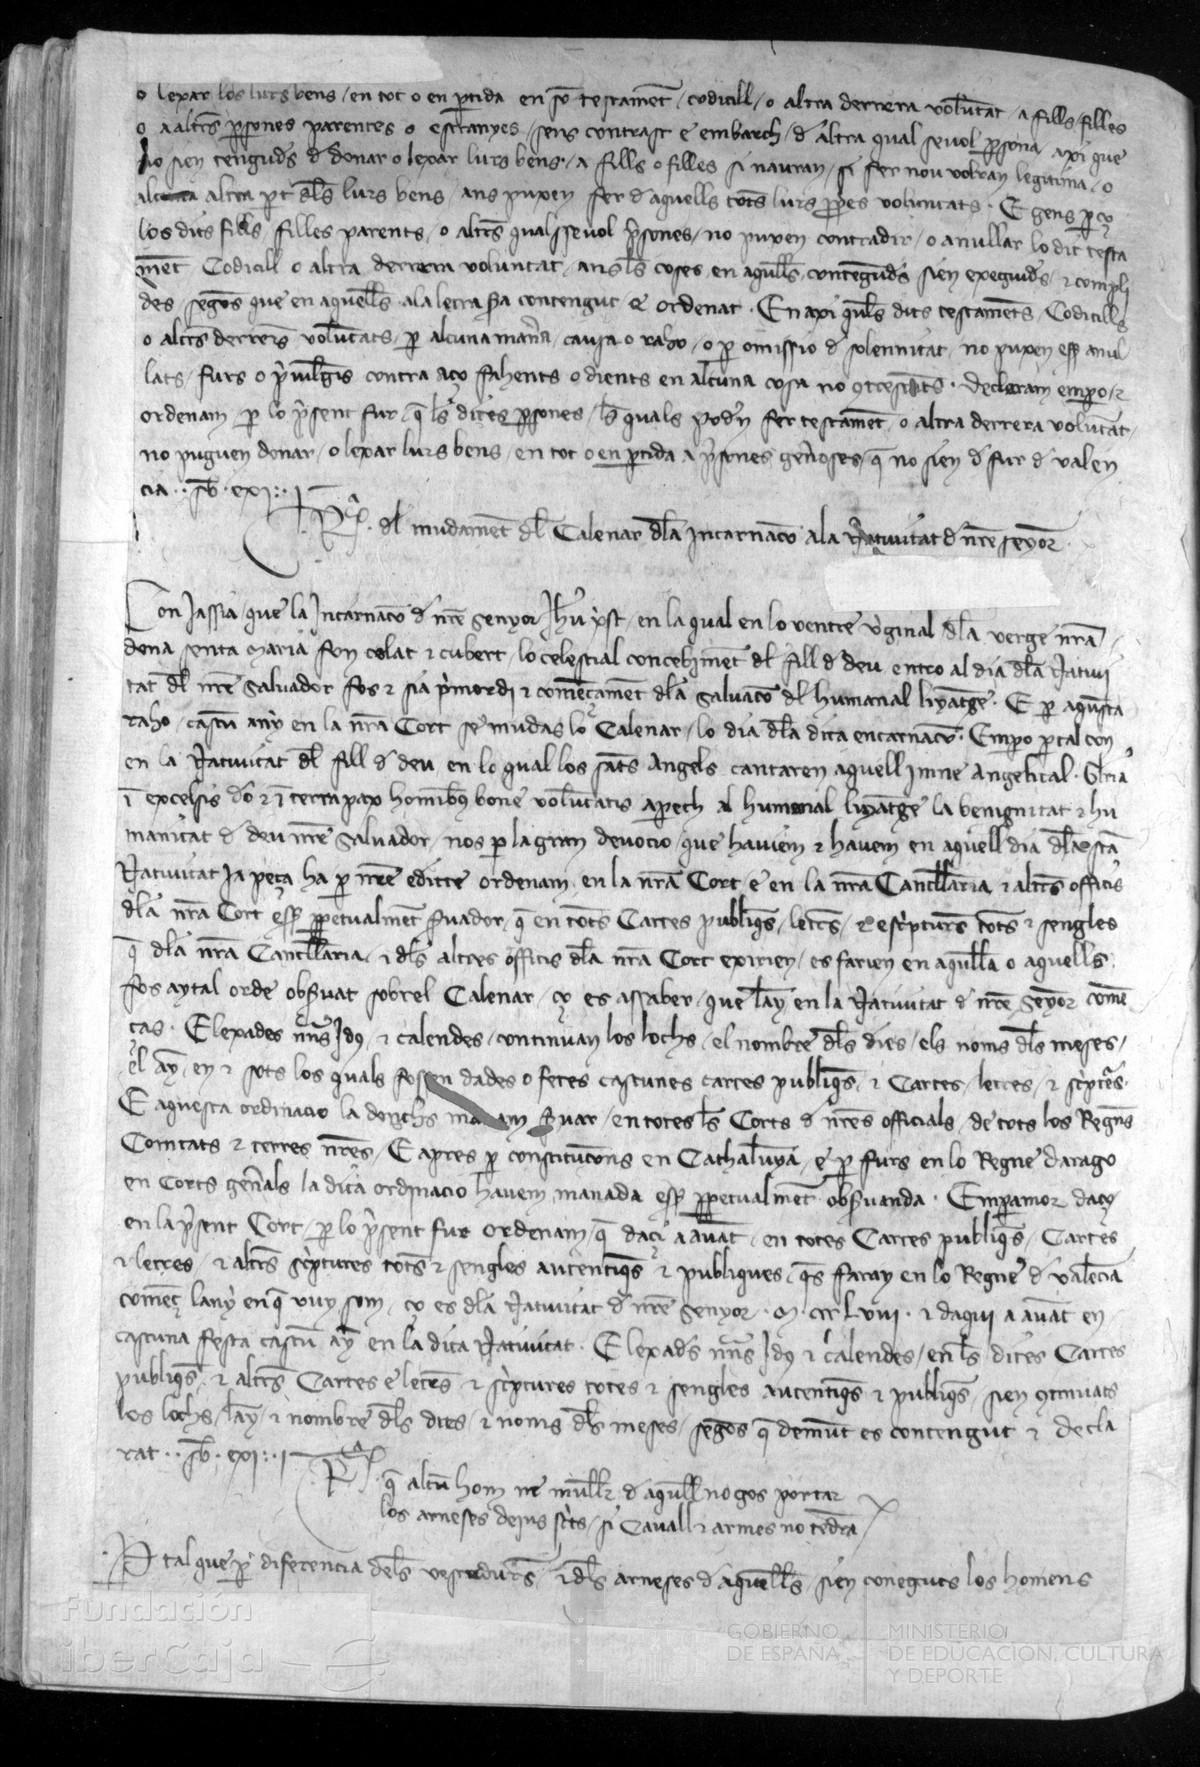 o lexar los lurs bens / en tot o en ptida en so testament / codicill / o altra derrera voluntat / a fills / filles
o a altrs psones parentes o estranyes / sens contrast e embarch / d altra qual sevol psona / axi que
no sien tenguds d donar o lexar lurs bens / a fills o filles si nauran / si fer nou volran legitima / o
altra pt dls lurs bens / ans puxen fer d aquells tots lurs ppes voluntats · E gens p ço
los dits fills / filles parents / o altrs qualssevol psones / no puxen contradir / o anullar lo dit testa
ment Codicill o altra derrera voluntat / ans ls coses en aqulls contenguds sien exeguids / & compli
des segons que en aquells a la letra sra contengut e ordenat · En axi quls dits testaments / Codicills
o altrs derrers voluntats / p alcuna manra / causa o raho / o p omissio d solennitat / no puxen esser anul
lats / furs o privilegis contra aço fahents o dients en alcuna cosa no contrestants · declaram empo / &
ordenam / p lo psent fur / q ls dites psones / ls quals poden fer testament / o altra derrera voluntat /
no puguen donar / o lexar lurs bens / en tot o en ptida a psones genroses / q no sien d fur d valen
cia · sb · exi ·
Rca · dl mudament dl Calenar dla incarnacio a la Nativitat d nre senyor
Con jassia / que la Incarnacio d nre Senyor Jhu xpst / en la qual en lo ventre virginal dla verge nra /
dona senta maria fon celat & cubert / lo celestial concebiment dl fill d deu entro al dia dla Nativi
tat dl nre salvador fos & sia primordi & començament dla salvacio dl humanal linatge · E p aquesta
raho / cascun any en la nra Cort se mudas lo Calenar / lo dia dla dita encarnacio · Empo p tal con
en la Nativitat dl fill d deu / en lo qual los sants Angels cantaren aquell imne Angelical · Glria
in excelsis deo & in terra pax hominibus bone voluntatis aparech al humanal linatge la benignitat & hu
manitat d deu nre salvador / nos p la gran devocio que haviem & havem en aquell dia dla sta
Nativitat ja peça ha p nre edicte ordenam / en la nra Cort / e en la nra Cancellaria & altrs officis
dla nra Cort esser ppetualment servador / q en tots Cartes publiqs / letres / & escripturs tots & sengles
q dla nra Cancellaria / & dls altres officis dla nra Cort exirien / es farien en aqulla o aquells
fos aytal orde observat sobrel Calenar / ço es assaber / que lany en la Nativitat d nre Senyor comen
ças · E lexades nons Idus & calendes / continuan los lochs / el nombre dls dies / els noms dls meses /
el any / en & sots los quals fossen dades o fetes cascunes cartes publiqs & Cartes / letres / & scriptres ·
E aquesta ordinacio la donchs manam servar / en totes ls Corts d nres officials / de tots los Regnes
Comtats & terres nres / E apres p constitucions en Cathalunya / e p furs en lo Regne darago
en Corts genrals la dita ordinacio havem manada esser ppetualment observanda · Emperamor daço
en la psent Cort / p lo psent fur ordenam / q daci a avant / en totes Cartes publiqs / Cartes
& letres / & altrs scriptures tots & sengles autentiqs & publiques / qs faran en lo Regne d valencia
començ lany en q vuy som / ço es dla Nativitat d nre Senyor · M · CCC Lviii · & daqui a avant en
cascuna festa cascun any en la dita Nativitat · E lexads nons Idus & calendes / en ls dites Cartes
publiqs / & altrs Cartes e letres & scriptures totes & sengles autentiqs & publiqs / sien continuats
los lochs / lany / & nombre dls dies / & noms dls meses / segons q demunt es contengut & decla
rat · sb · exi ·
Rca · q alcun hom ne muller d aqull no gos portar
los arneses dejus scrits / si Cavall & armes no tendra /
P tal que p diferencia dels vestedurs / & dls arneses d aquells / sien coneguts los homens
Fundación
iberCaja
GOBIERNO
DE ESPAÑA
MINISTERIO
DE EDUCACIÓN, CULTURA
Y DEPORTE